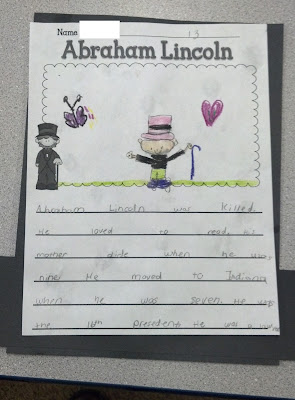 Name 13
Abraham Lincoln
Abraham Lincoln was killed.
He loved to read. his
mother dide when he was
nine. He moved to Indiana
when he was seven. He was
the 16th president. He was a